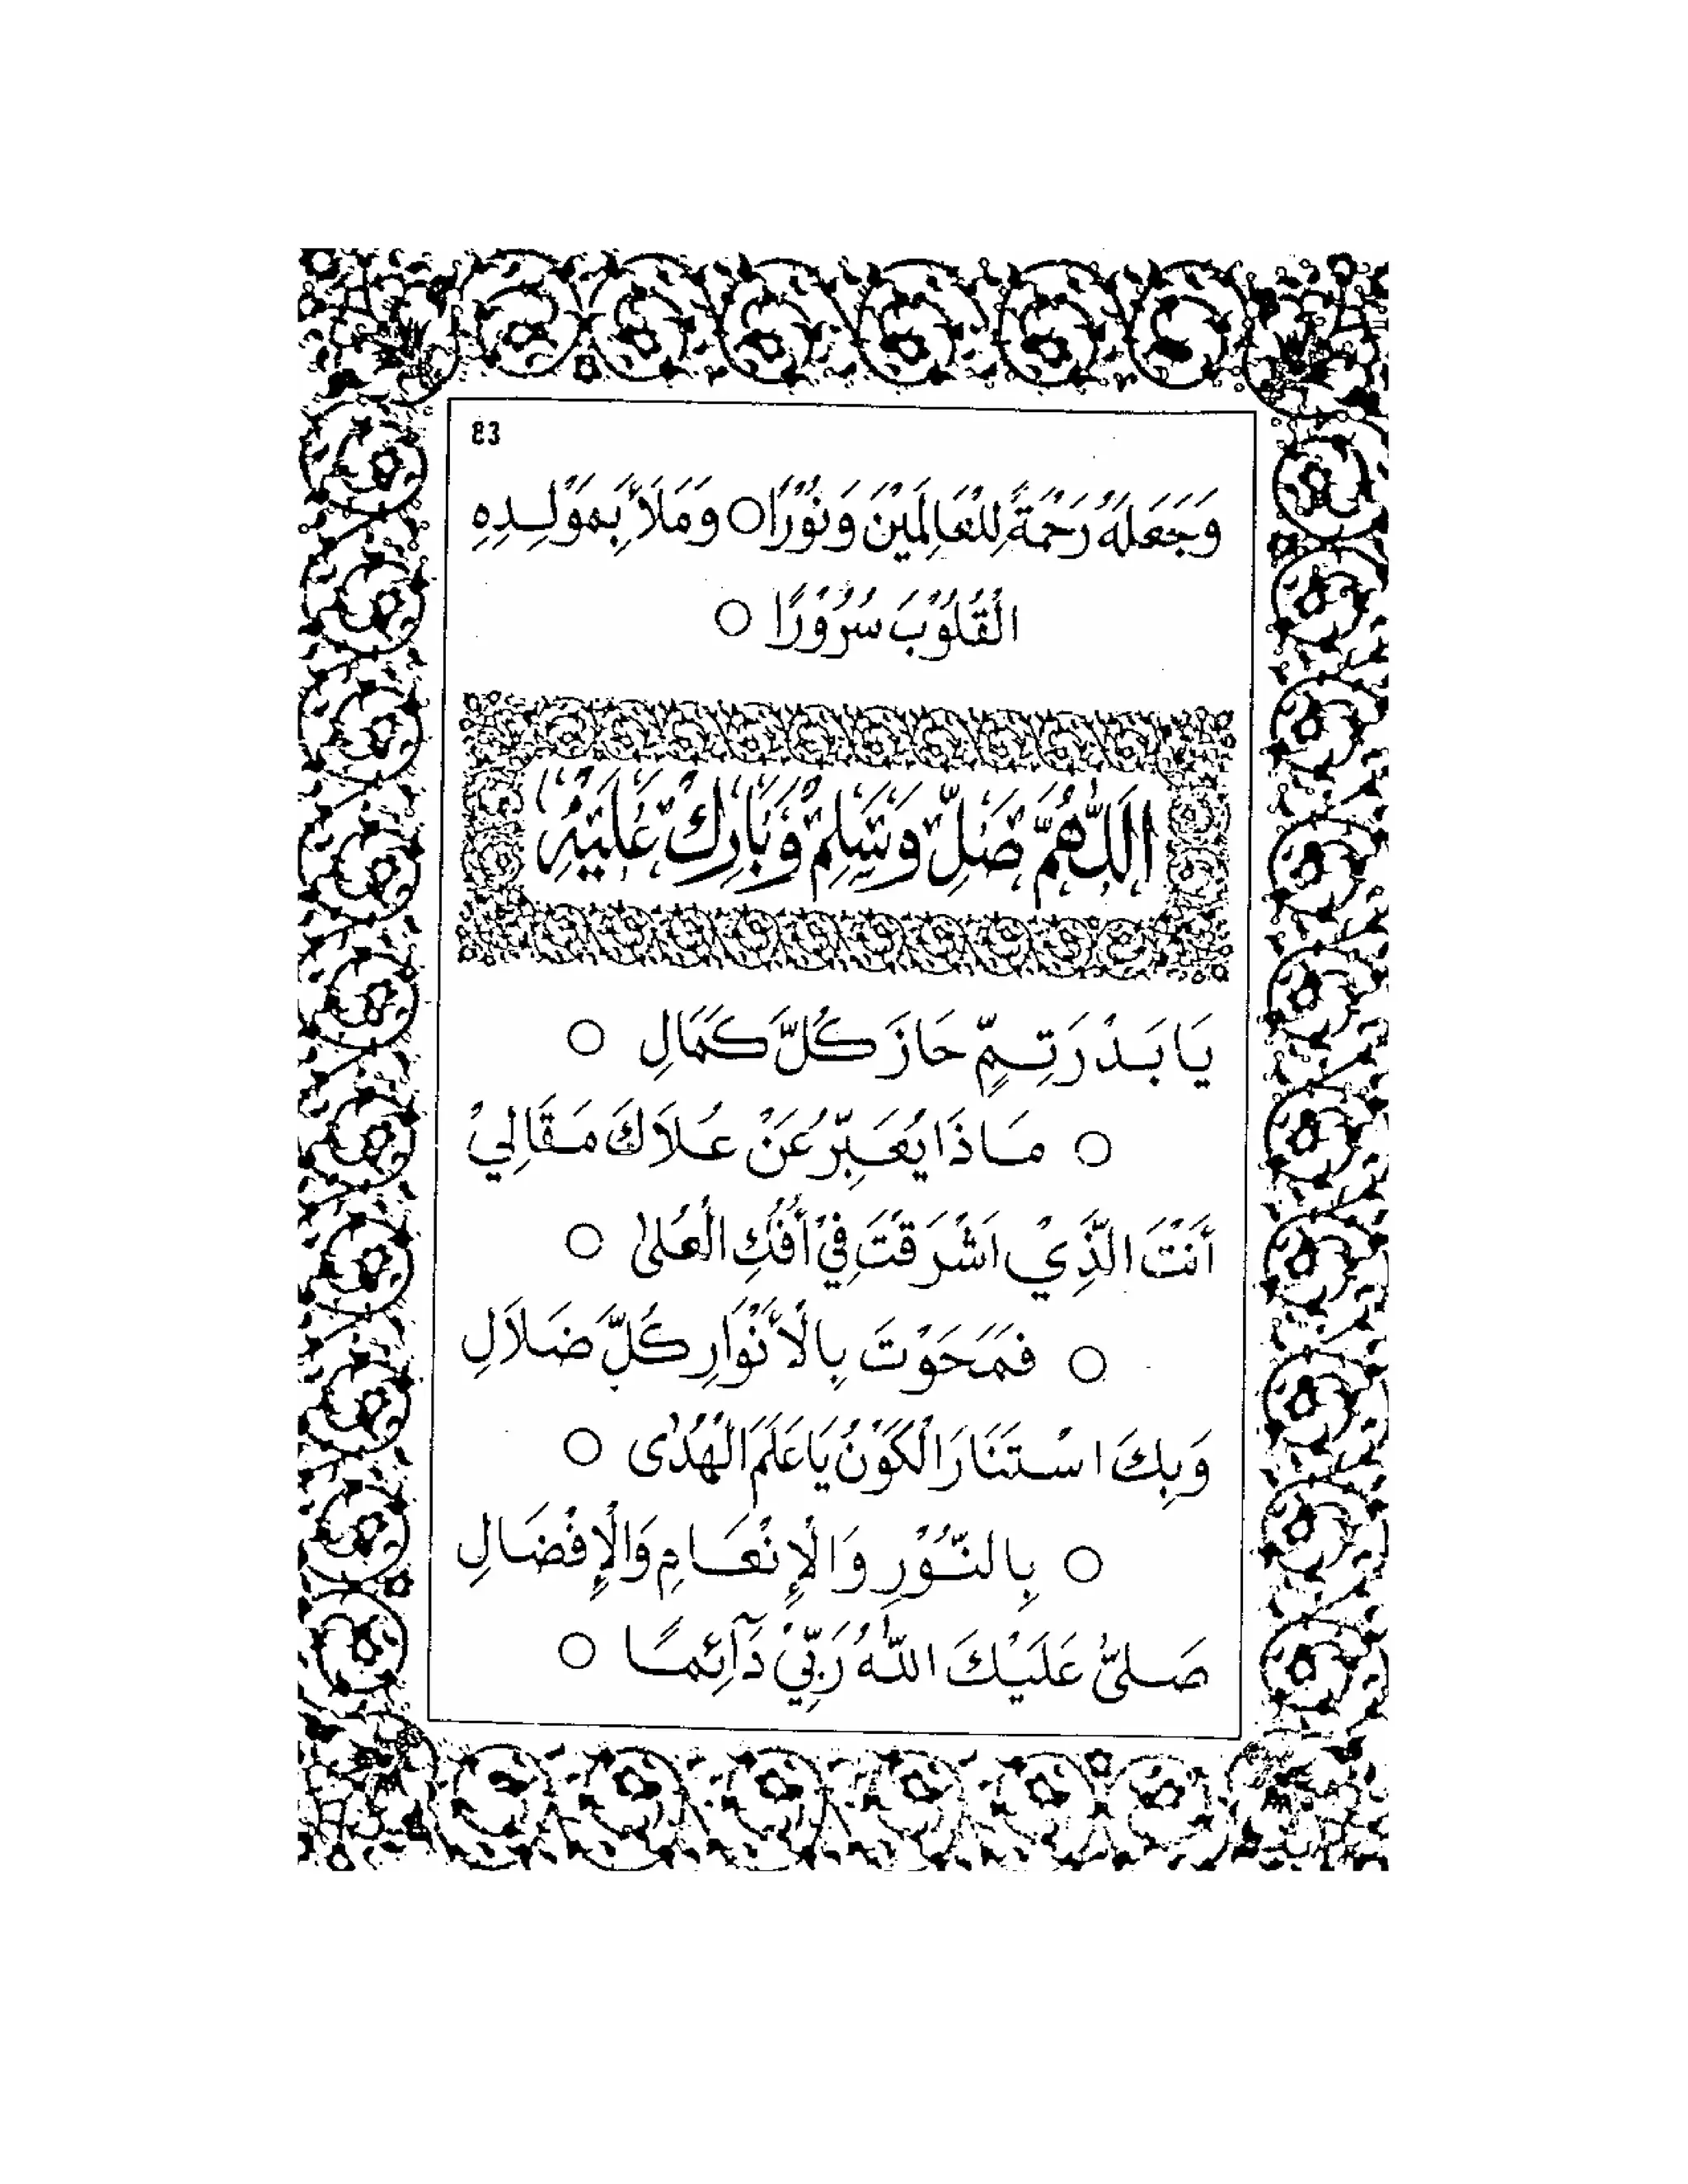 83
وَجَعَلَهُ رَحْمَةً لِلْعَالَمِيْنَ وَنُوْرًا ○ وَمَلَأَ بِمَوْلِـدِهِ
الْقُلُوْبَ سُرُوْرًا ○
اَللّٰهُمَّ صَلِّ وَسَلِّمْ وَبَارِكْ عَلَيْهِ
يَا بَـدْرَ تِـمٍّ حَازَ كُلَّ كَمَالِ ○
○ مَـاذَا يُعَـبِّرُ عَنْ عُـلَاكَ مَـقَالِيْ
أَنْتَ الَّذِيْ اَشْرَقْتَ فِيْ أُفُقِ الْعُلىٰ ○
○ فَمَحَوْتَ بِالْأَنْوَارِ كُلَّ ضَلَالِ
وَبِكَ اسْـتَنَارَ الْكَوْنُ يَا عَلَمَ الْهُدٰى ○
○ بِالنُّـوْرِ وَالْإِنْعَـامِ وَالْإِفْضَـالِ
صَـلىّٰ عَلَيْـكَ اللّٰهُ رَبِّيْ دَآئِمًـا ○